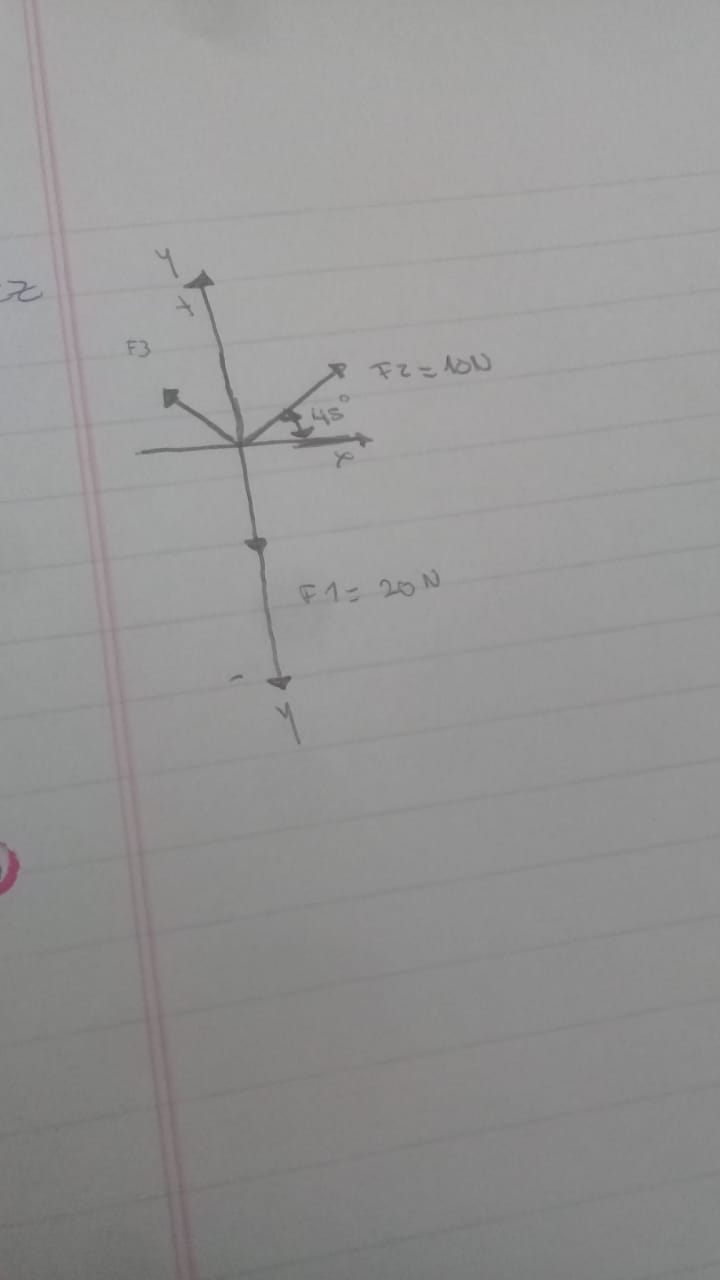 Y
z
+
F3
F2 = 10N
45°
x
F1 = 20N
-
Y